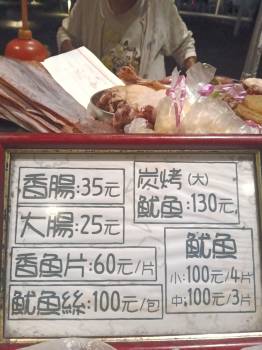 香腸:35元
大腸:25元
香魚片:60元/片
魷魚絲:100元/包
炭烤(大)
魷魚:130元
魷魚
小:100元/4片
中:100元/3片